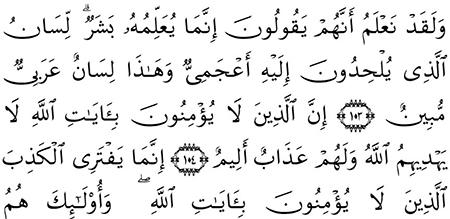 وَلَقَدْ نَعْلَمُ أَنَّهُمْ يَقُولُونَ إِنَّمَا يُعَلِّمُهُۥ بَشَرٌۗ لِّسَانُ
ٱلَّذِى يُلْحِدُونَ إِلَيْهِ أَعْجَمِىٌّ وَهَـٰذَا لِسَانٌ عَرَبِىٌّ
مُّبِينٌ ١٠٣ إِنَّ ٱلَّذِينَ لَا يُؤْمِنُونَ بِـَٔايَـٰتِ ٱللَّهِ لَا
يَهْدِيهِمُ ٱللَّهُ وَلَهُمْ عَذَابٌ أَلِيمٌ ١٠٤ إِنَّمَا يَفْتَرِى ٱلْكَذِبَ
ٱلَّذِينَ لَا يُؤْمِنُونَ بِـَٔايَـٰتِ ٱللَّهِۖ وَأُو۟لَـٰٓئِكَ هُمُ